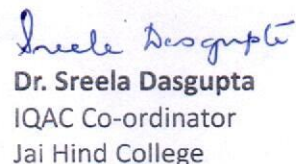 Sreela Dasgupta
Dr. Sreela Dasgupta
IQAC Co-ordinator
Jai Hind College